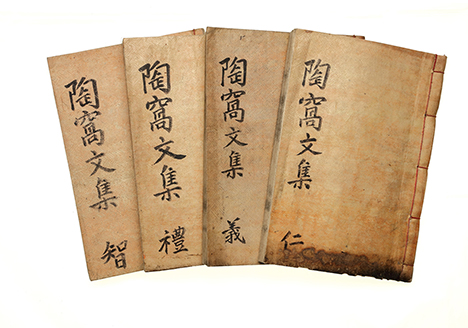 陶窩文集 仁
陶窩文集 義
陶窩文集 禮
陶窩文集 智